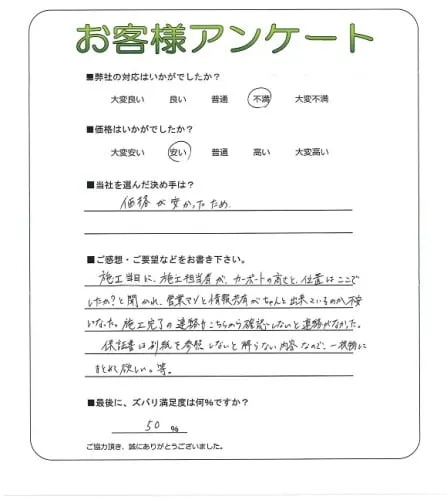 お客様アンケート
■弊社の対応はいかがでしたか?
大変良い 良い 普通 不満 大変不満
■価格はいかがでしたか?
大変安い 安い 普通 高い 大変高い
■当社を選んだ決め手は?
価格が安かったため
■ご感想・ご要望などをお書き下さい。
施工当日に、施工担当者が、カーポートの高さと、位置はここで
したか?と聞かれ、営業マンと情報共有がちゃんと出来ているのか、不安
になった。施工完了の連絡もこちらから確認しないと連絡がなかった。
保証書は別紙を参照しないと解らない内容なので、一枚物に
まとめて欲しい。等。
■最後に、ズバリ満足度は何%ですか?
50 %
ご協力頂き、誠にありがとうございました。